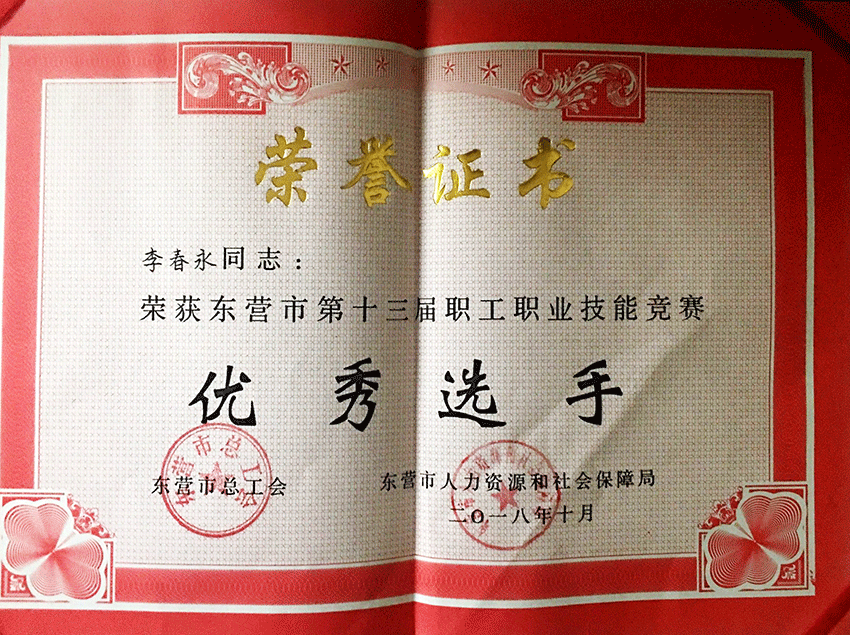 荣誉证书
李春永同志：
荣获东营市第十三届职工职业技能竞赛
优秀选手
东营市总工会
东营市人力资源和社会保障局
二〇一八年十月
东营市总工会